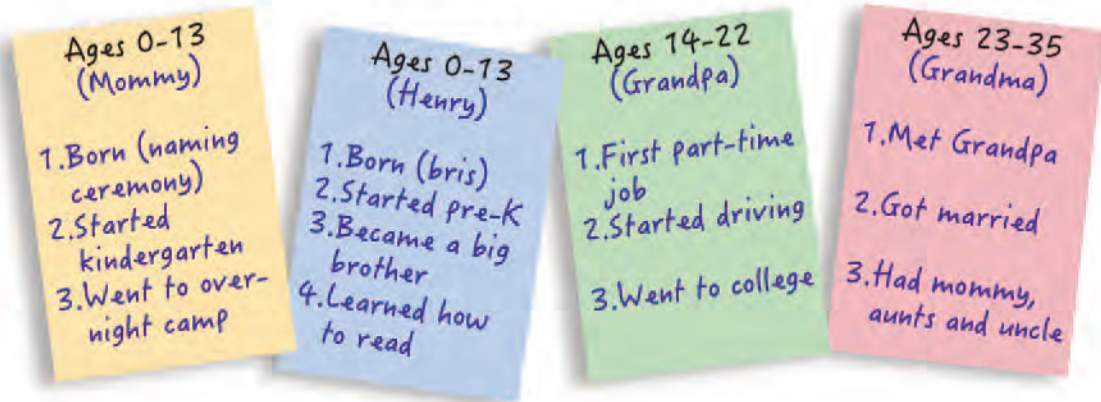 Ages 0-13
(Mommy)
1.Born (naming
ceremony)
2.Started
kindergarten
3.Went to over-
night camp
Ages 0-13
(Henry)
1.Born (bris)
2.Started pre-K
3.Became a big
brother
4.Learned how
to read
Ages 14-22
(Grandpa)
1.First part-time
job
2.Started driving
3.Went to college
Ages 23-35
(Grandma)
1.Met Grandpa
2.Got married
3.Had mommy,
aunts and uncle